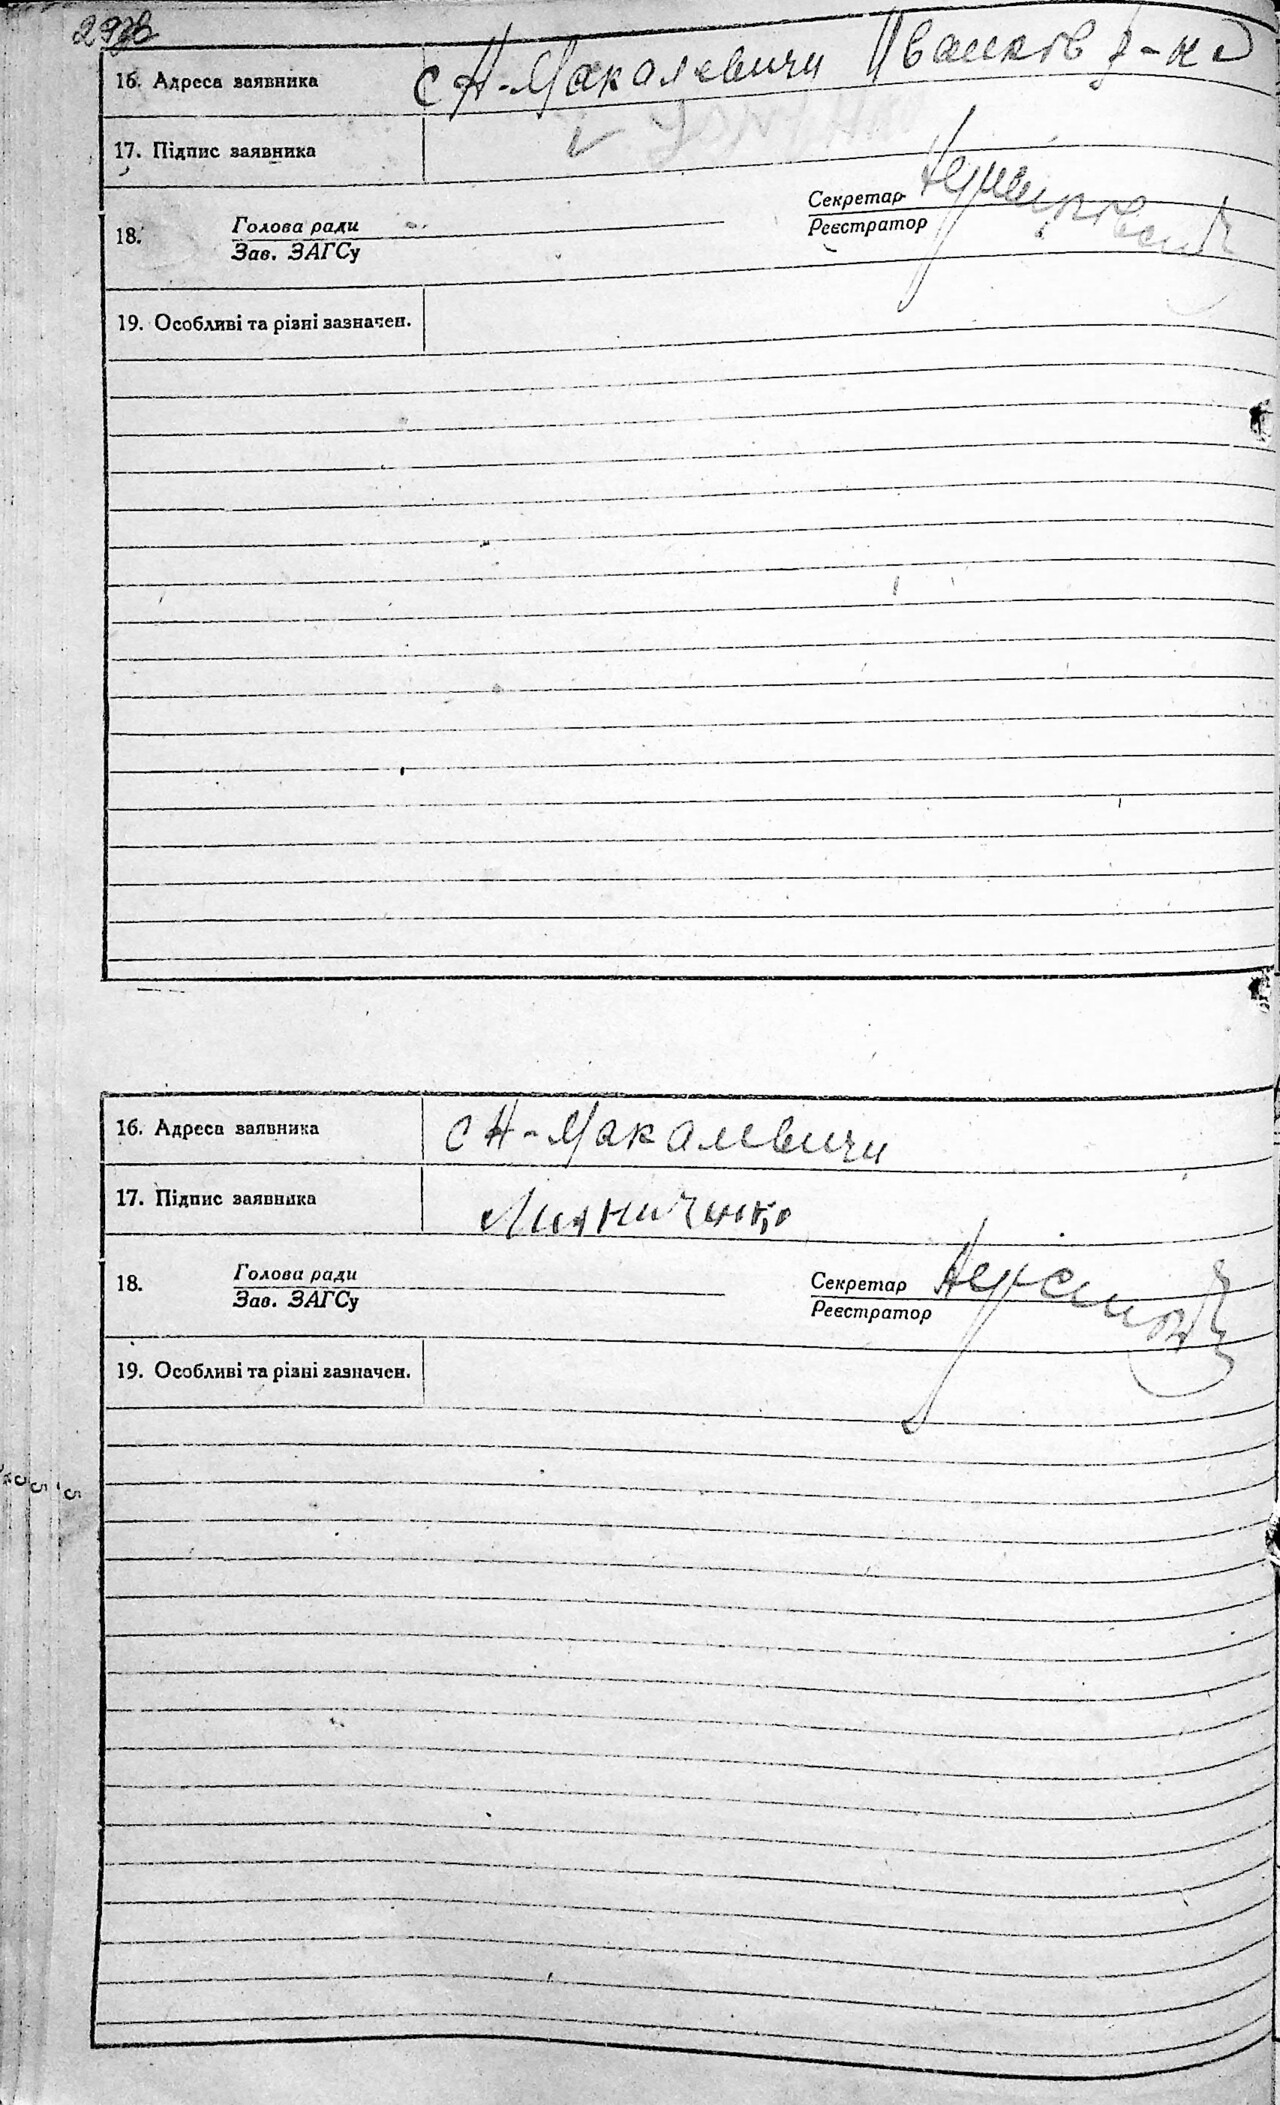 297зв
16. Адреса заявника с Н-Макалевичи Иванков р-на
17. Підпис заявника
18. Голова ради Секретар
Зав. ЗАГСу Реєстратор
19. Особливі та різні зазначен.
16. Адреса заявника с Н-Макалевичи
17. Підпис заявника
18. Голова ради Секретар
Зав. ЗАГСу Реєстратор
19. Особливі та різні зазначен.